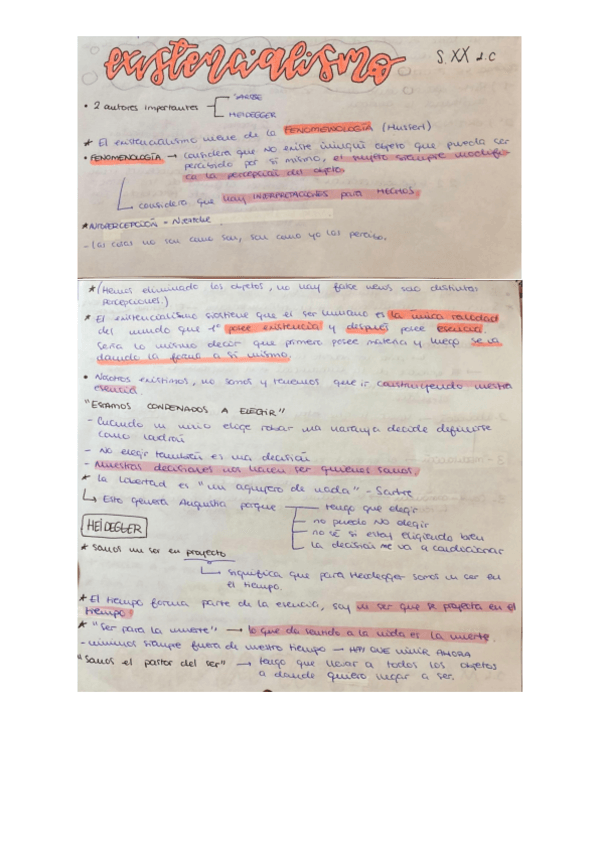 existencialismo S. XX d.C
• 2 autores importantes SARTRE
HEIDEGGER
* El existencialismo viene de la FENOMENOLOGÍA (Husserl)
• FENOMENOLOGÍA → considera que NO existe ningún objeto que pueda ser
percibido por si mismo, el sujeto siempre modifi-
ca la percepción del objeto
considera que hay INTERPRETACIONES para HECHOS.
- Las cosas no son como son, son como yo las percibo.
* (Hemos eliminado los objetos, no hay false news sino distintas
percepciones.)
* El existencialismo sostiene que el ser humano es la única realidad
del mundo que 1º posee existencia y después posee esencia.
Sería lo mismo decir que primero posee materia y luego se va
dando la forma a si mismo.
• Nosotros existimos, no somos y tenemos que ir construyendo nuestra
esencia.
"ESTAMOS CONDENADOS A ELEGIR"
- Cuando un niño elige robar una naranja decide definirse
como ladrón
- No elegir también es una decisión
- Nuestras decisiones nos hacen ser quienes somos.
* La libertad es "un agujero de nada" - Sartre
Esto genera Angustia porque tengo que elegir
no puedo NO elegir
no sé si estoy eligiendo bien
la decisión me va a condicionar
HEIDEGGER
* Somos un ser en proyecto
significa que para Heidegger somos un ser en
el tiempo.
* El tiempo forma parte de la esencia, soy un ser que se proyecta en el
tiempo.
* "Ser para la muerte" → lo que da sentido a la vida es la muerte.
- vivimos siempre fuera de nuestro tiempo → HAY QUE VIVIR AHORA
"Somos el pastor del ser" → tengo que llevar a todos los objetos
a donde quiero llegar a ser.